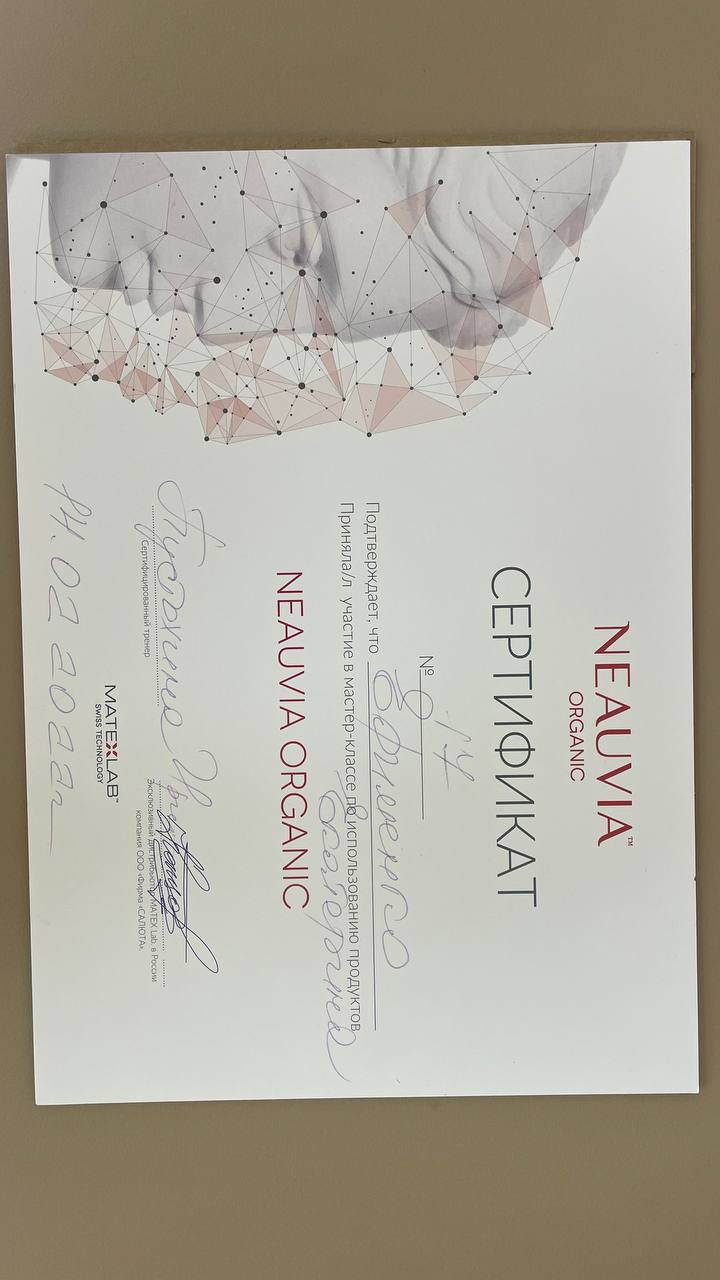 NEAUVIA™
ORGANIC
СЕРТИФИКАТ
№ 17
Подтверждает, что Ефименко
Приняла/л участие в мастер-классе по использованию продуктов
Екатерина
NEAUVIA ORGANIC
Пустохина
Сертифицированный тренер
Эксклюзивный дистрибьютор MATEX Lab. в России
компания ООО «Фирма «САЛЮТА».
MATEXLAB™
SWISS TECHNOLOGY
14.02 2022г